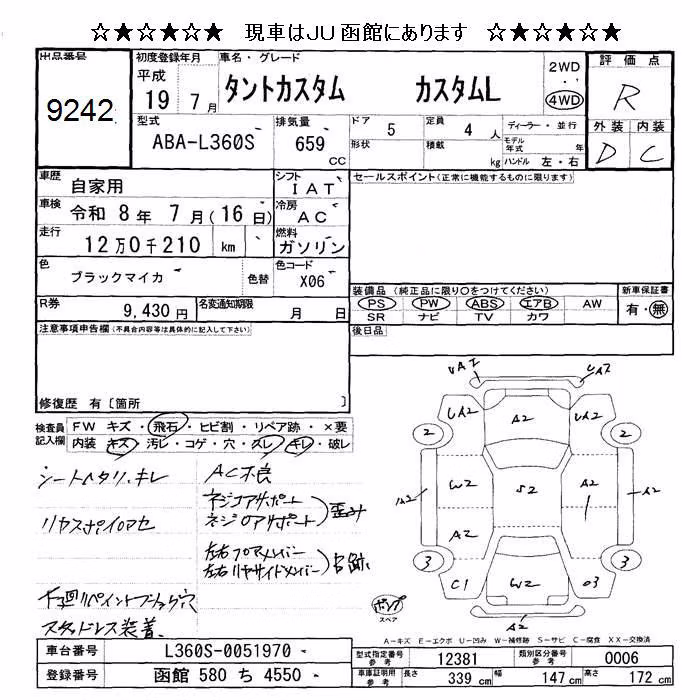 ☆★☆★☆★ 現車はJU函館にあります ☆★☆★☆★
出品番号
9242
初度登録年月
平成
19年7月
車名・グレード
タントカスタム カスタムL
2WD
・
4WD
評価点
R
型式
ABA-L360S
排気量
659
CC
ドア
5
定員
4人
ディーラー・並行
形状
積載
kg
モデル年式
年
ハンドル 左・右
外装 内装
D C
車歴
自家用
シフト
IAT
セールスポイント(正常に機能するものに限ります)
車検
令和 8年 7月(16日)
冷房
AC
走行
12万0千210 km
燃料
ガソリン
色
ブラックマイカ
色替
色コード
X06
装備品(純正品に限り○をつけてください)
新車保証書
PS PW ABS エアB AW
SR ナビ TV カワ
有・無
R券
9,430円
名変通知期限
月 日
後日品
注意事項申告欄(不具合内容等は具体的に記入して下さい)
修復歴 有[箇所 ]
検査員記入欄
FW キズ・飛石・ヒビ割・リペア跡・×要
内装 キズ・汚レ・コゲ・穴・スレ・キレ・破レ
シートヘタリ、キレ
AC不良
リヤスポイロマセ
左右フロアメンバー
左右リヤサイドメンバー
下廻リペイントフーチング穴
スタッドレス装着
UA2 UA2
UA2 A2 UA2
2 2
W2 S2 A2
A2 A2
A2
3 3
C1 W2 03
A2
ポンプ
スペア
A-キズ E-エクボ U-凹み W-補修跡 S-サビ C-腐食 XX-交換済
車台番号
L360S-0051970
登録番号
函館 580 ち 4550
型式指定番号
参考
12381
類別区分番号
参考
0006
車庫証明用
参考
長さ
339 cm
幅
147 cm
高さ
172 cm